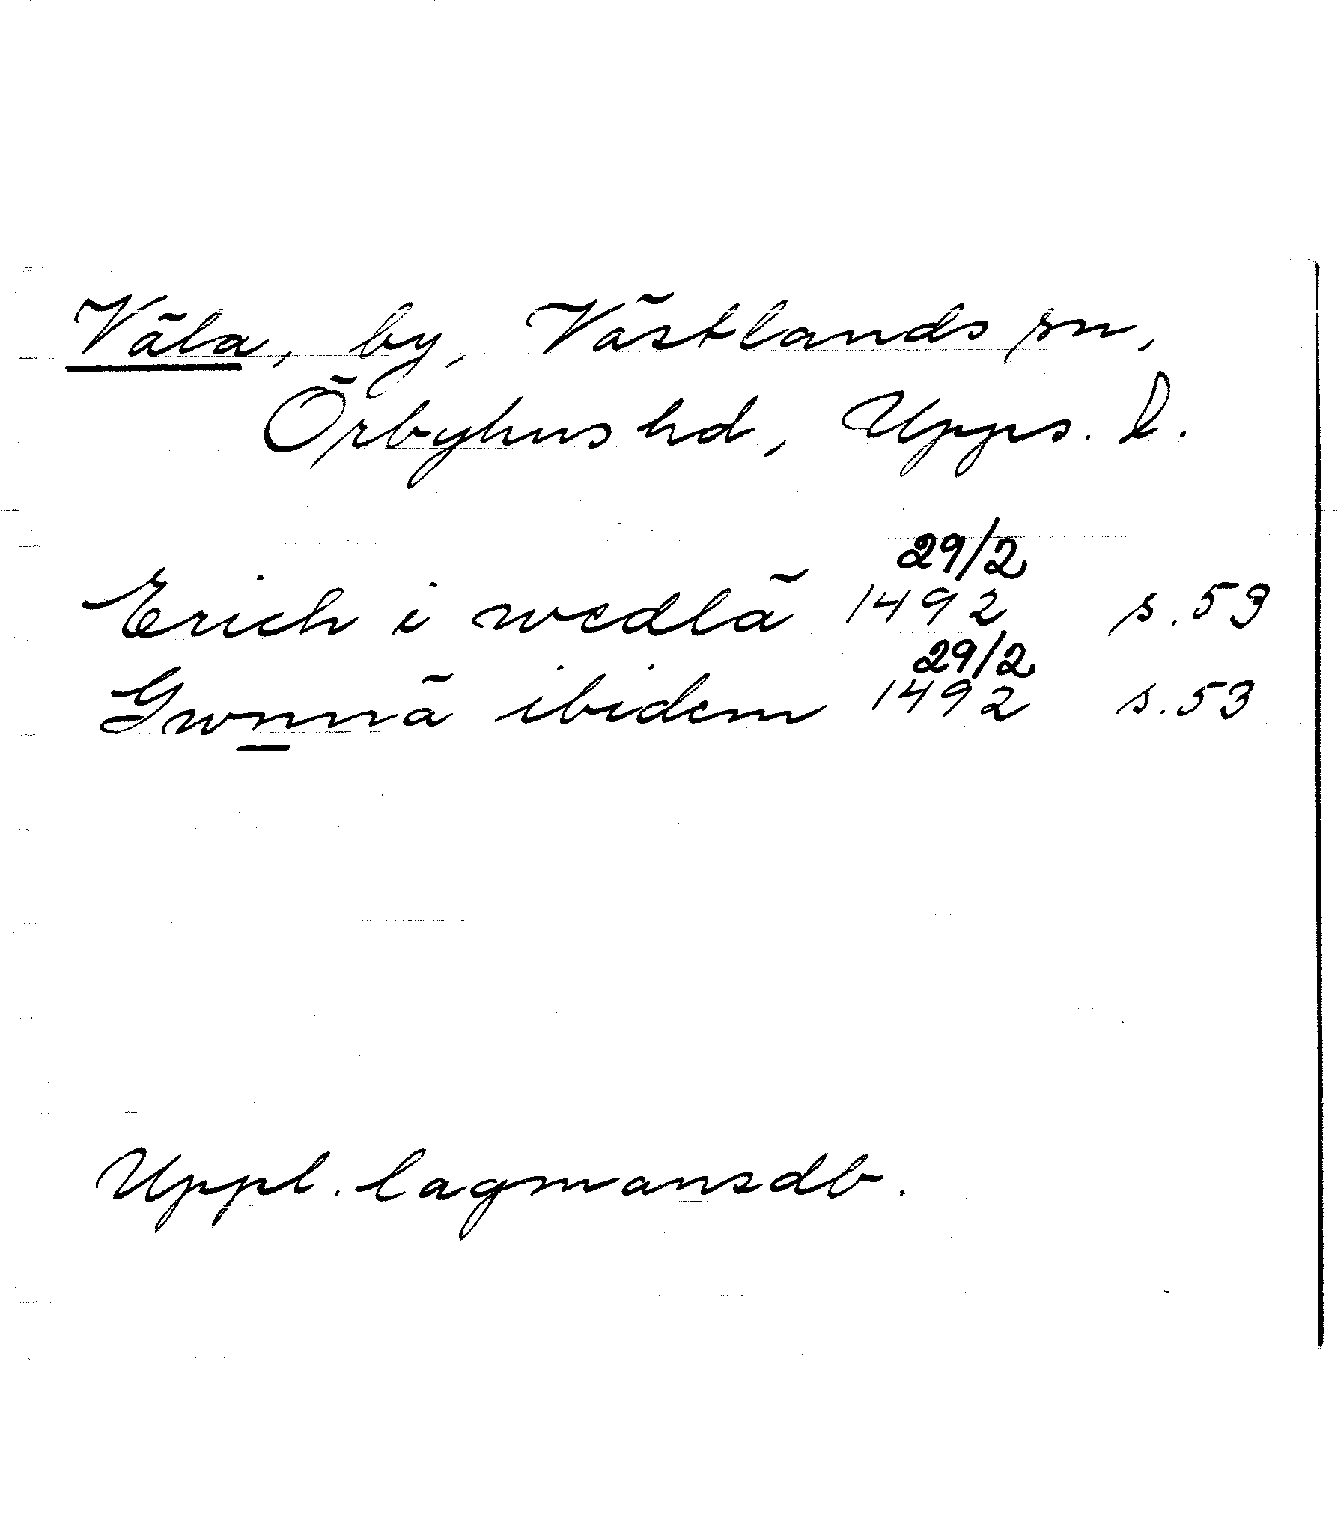 Väla, by, Västlands sn,
Örbyhus hd, Upps. l.
Erich i wedlā 29/2 1492 s. 53
Gwnnā ibidem 29/2 1492 s. 53
Uppl. lagmansdb.